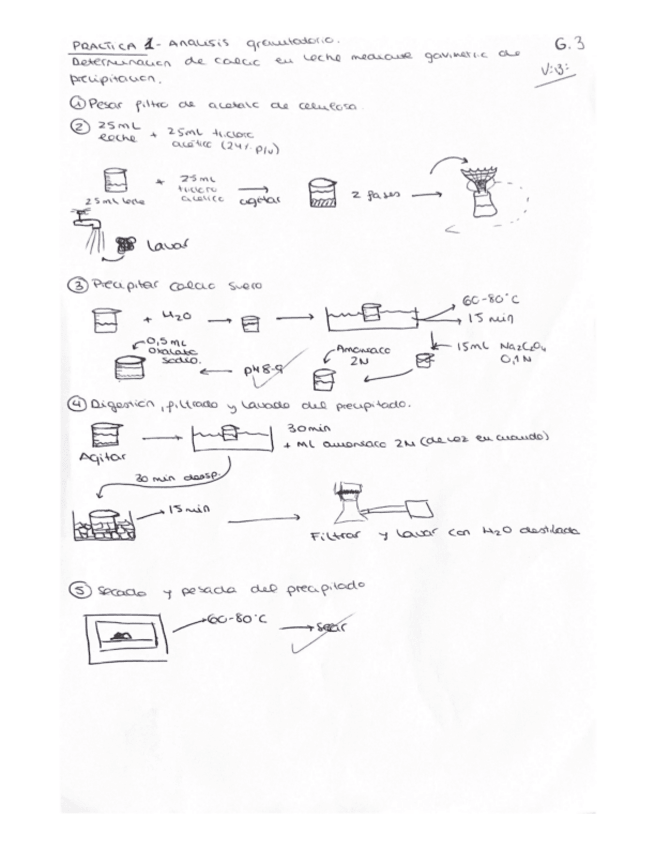 PRACTICA 1 - Analisis granulatorio.
G. 3
Determinacion de calcio en leche mediante gavimetric de
precipitacion.
V:B:
① Pesar filtro de acetato de celulosa.
② 25mL leche + 25mL tricloro acético (24% p/v)
25mL leche
+ 25mL tricloro acetico
agitar
2 fases
Lavar
③ Precipitar calcio suero
+ H2O
60-80°C
15 min
15mL Na2C2O4 0,1N
Amoniaco 2N
pH 8-9
0,5mL Oxalato sodio.
④ Digestion, filtrado y lavado del precipitado.
Agitar
30min
+ mL amoniaco 2N (de vez en cuando)
30 min desp.
15min
Filtrar y lavar con H2O destilada
⑤ Secado y pesada del precipitado
60-80°C
secar